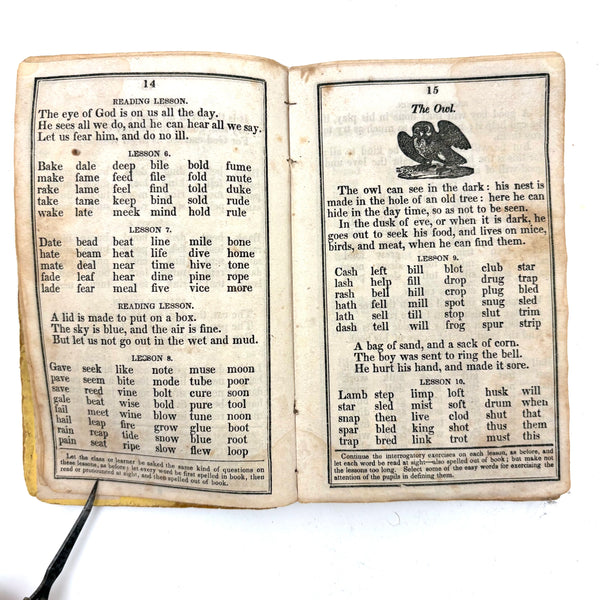 14
READING LESSON.
The eye of God is on us all the day.
He sees all we do, and he can hear all we say.
Let us fear him, and do no ill.
LESSON 6.
Bake dale deep bile bold fume
make fame feed file fold mute
rake lame feel find told duke
take tame keep bind sold rude
wake late meek mind hold rule
LESSON 7.
Date bead beat line mile bone
hate beam heat life dive home
mate deal near time hive tone
fade leaf hear dine pine rope
lade fear meal five vice more
READING LESSON.
A lid is made to put on a box.
The sky is blue, and the air is fine.
But let us not go out in the wet and mud.
LESSON 8.
Gave seek like note muse moon
pave seem bite mode tube poor
save reed vine bolt cure soon
gale beat wise bold pure tool
fail meet wine blow tune noon
hail leap fire grow glue boot
rain reap tide snow blue root
pain seat ripe slow flew loop
Let the class or learner be asked the same kind of questions on
these lessons, as before; let every word be first spelled in book, then
read or pronounced at sight, and then spelled out of book.
15
The Owl.
The owl can see in the dark: his nest is
made in the hole of an old tree: here he can
hide in the day time, so as not to be seen.
In the dusk of eve, or when it is dark, he
goes out to seek his food, and lives on mice,
birds, and meat, when he can find them.
LESSON 9.
Cash left bill blot club star
lash help fill drop drug trap
rash bell hill crop plug bled
hath fell mill spot snug sled
lath sell till stop slut trim
dash tell will frog spur strip
A bag of sand, and a sack of corn.
The boy was sent to ring the bell.
He hurt his hand, and made it sore.
LESSON 10.
Lamb step limp loft husk will
star sled mist soft drum when
snap then live clod shut that
spar bled king shot thus them
trap bred link trot must this
Continue the interrogatory exercises on each lesson, as before, and
let each word be read at sight—also spelled out of book; but make not
the lessons too long. Select some of the easy words for exercising the
attention of the pupils in defining them.